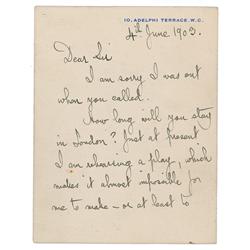 10, ADELPHI TERRACE, W.C.
4th June 1903.
Dear Sir
I am sorry I was out
when you called.
How long will you stay
in London? Just at present
I am rehearsing a play, which
makes it almost impossible for
me to make – or at least to